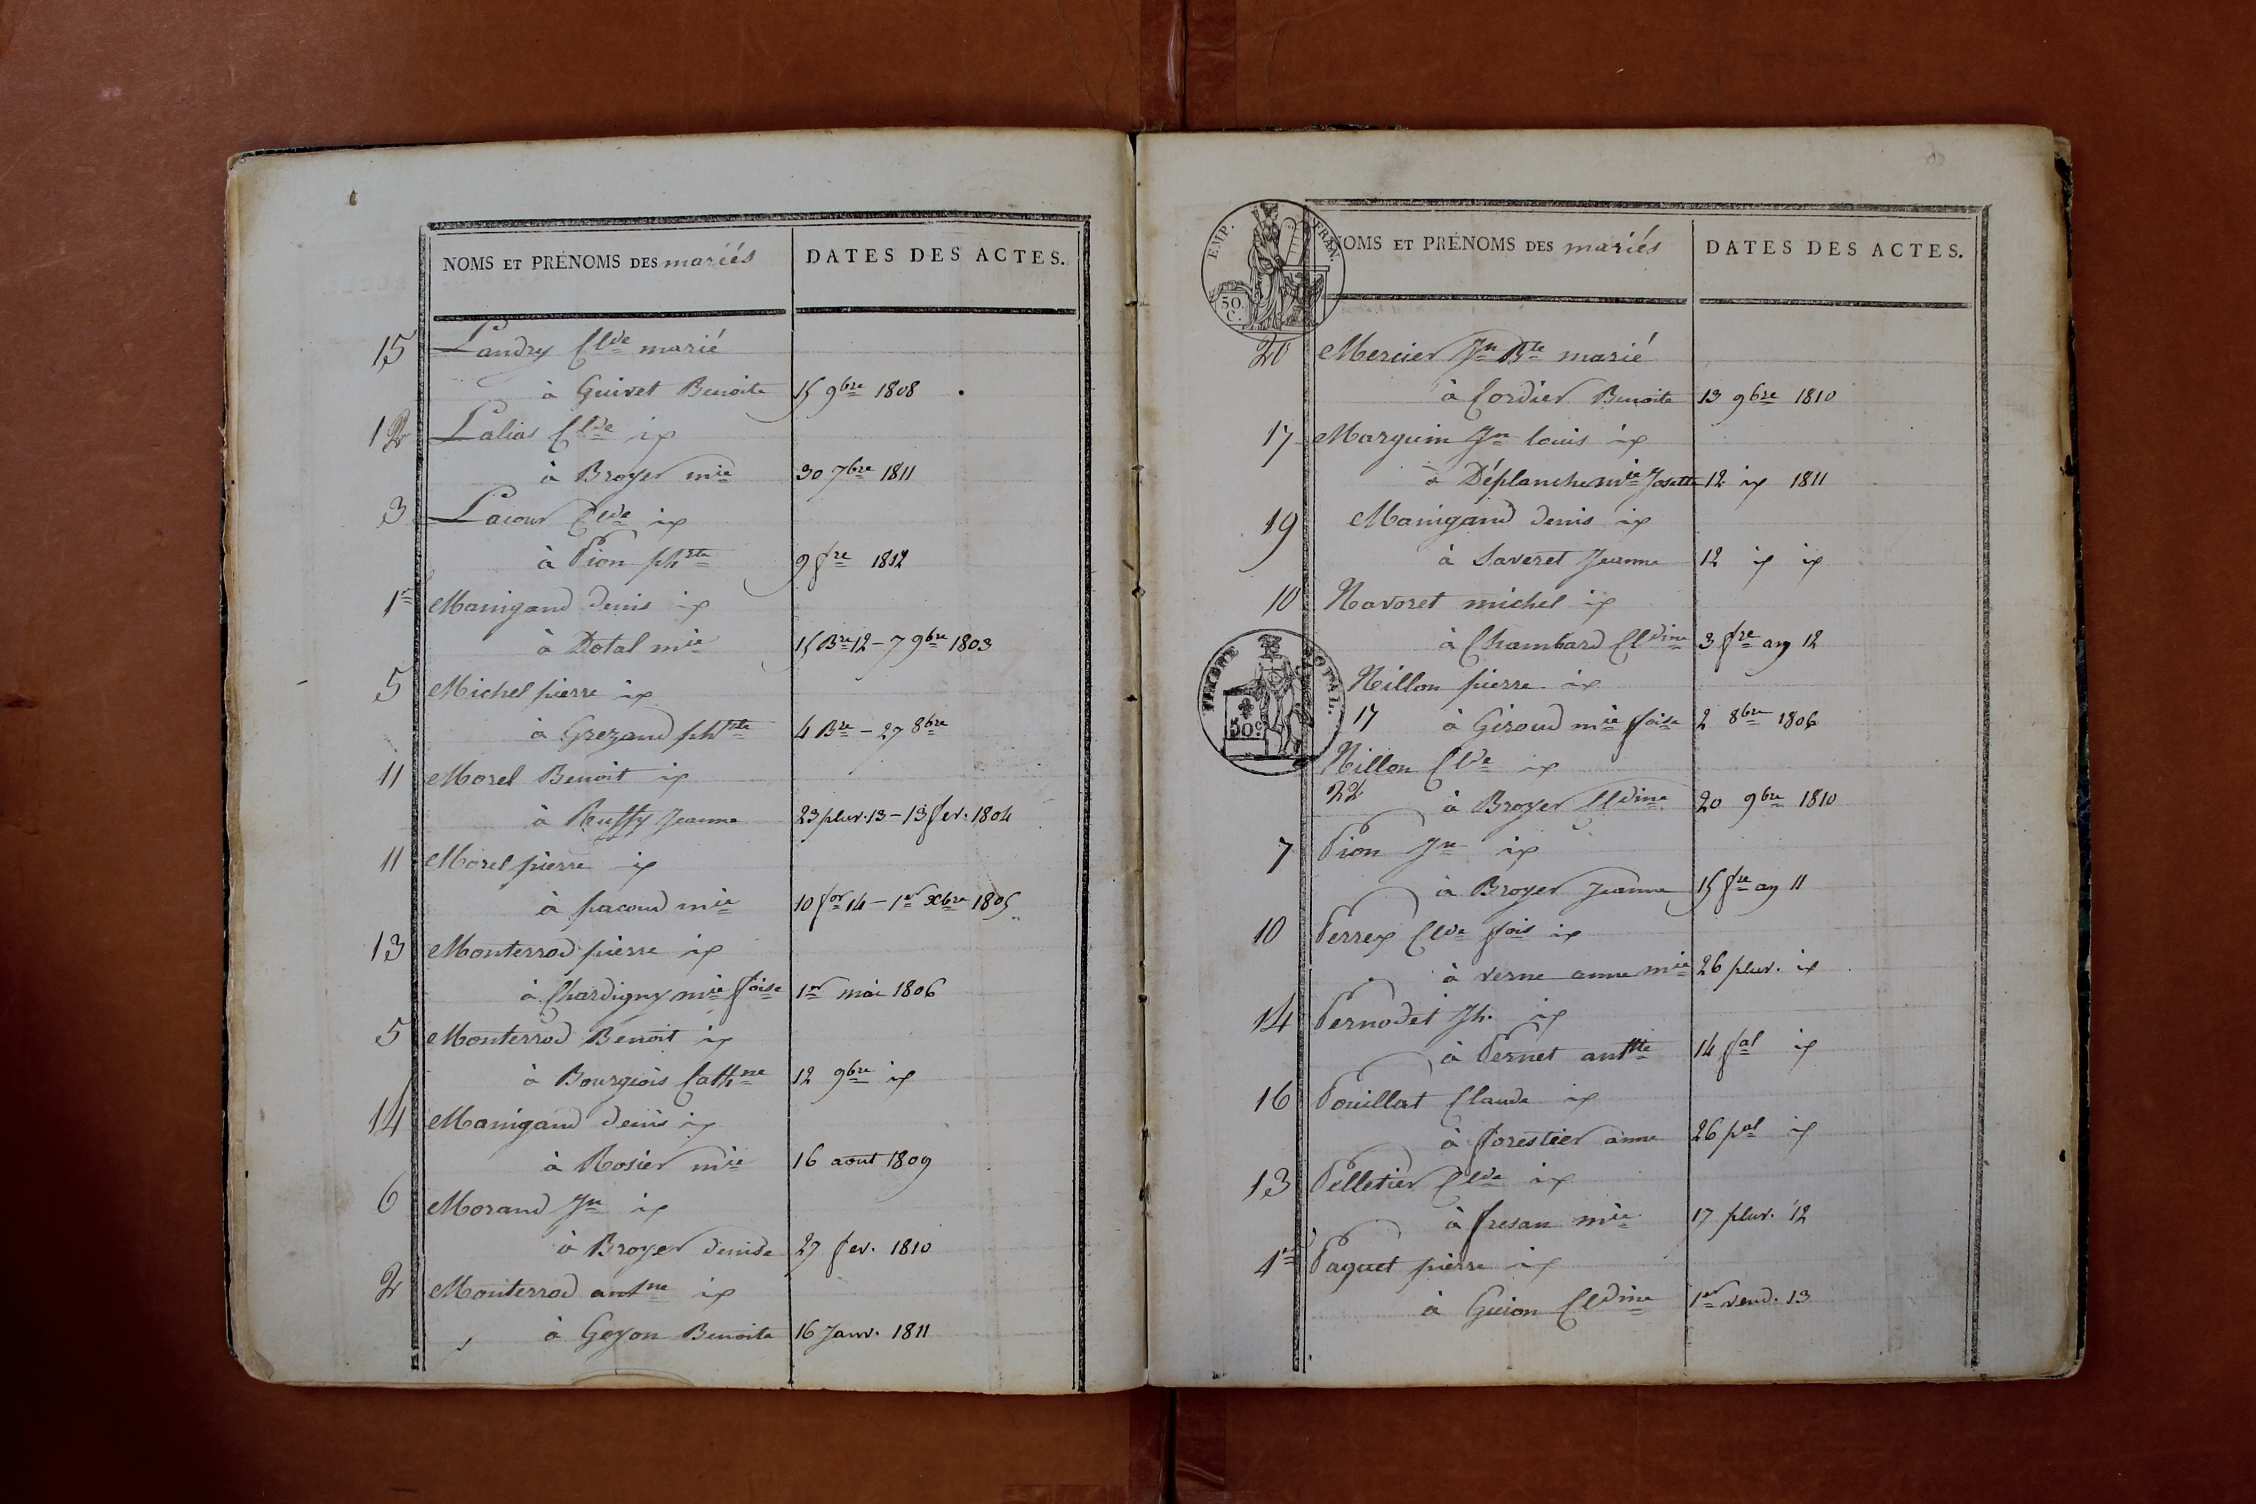 NOMS ET PRÉNOMS DES mariés
DATES DES ACTES.
15 Landry Clde marié
à Guivet Benoite 15 9bre 1808
12 Lalias Clde id
à Broyer mie 30 7bre 1811
3 Lacour Clde id
à Pion phte 9 fre 1812
1r Manigand denis id
à Dotal mie 15 Bre 12 - 7 9bre 1803
5 Michel pierre id
à Grezaud phte 4 Bre - 27 8bre
11 Morel Benoit id
à Ruffy Jeanne 23 pluv. 13 - 13 fev. 1804
11 Morel pierre id
à pacoud mie 10 for 14 - 1er Xbre 1805
13 Monterrod pierre id
à Chardigny mie foise 1er mai 1806
5 Monterrod Benoit id
à Bourgiois Cathne 12 9bre id
14 Manigand denis id
à Rosier mie 16 aout 1809
6 Morand Jn id
à Broyer denise 27 fev. 1810
2 Monterrod antne id
à Geyon Benoite 16 Janv. 1811
EMP. FRAN.
50 C.
NOMS ET PRÉNOMS DES mariés
DATES DES ACTES.
20 Mercier Jn Bte marié
à Cordier Benoite 13 9bre 1810
17 Marguin Jn louis id
à Déplanche mie Josette 12 id 1811
19 Manigand denis id
à Saveret Jeanne 12 id id
10 Navoret michel id
à Chambard Cldine 3 fre an 12
TIMBRE ROYAL.
50c
Nillon pierre id
17 à Giroud mie foise 2 8bre 1806
Nillon Clde id
22 à Broyer Cldine 20 9bre 1810
7 Pion Jn id
à Broyer Jeanne 15 fre an 11
10 Perrex Clde fois id
à verne anne mie 26 pluv. id
14 Pernodet Jh. id
à Pernet antte 14 fal id
16 Pouillat Claude id
à forestier anne 26 pal id
13 Pelletier Clde id
à fresan mie 17 pluv. 12
1r Paquet pierre id
à Guion Cldine 1er vend. 13